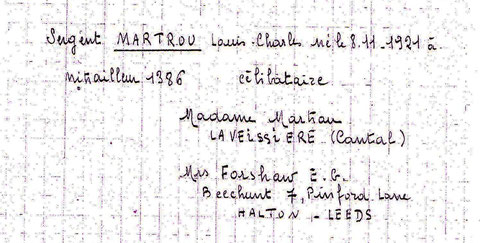 Sergent MARTROU Louis-Charles né le 8.11-1921 à
mitrailleur 1386 célibataire
Madame Martrou
LAVEISSIERE (Cantal)
Mrs Forshaw E.G.
Beechunt 7, Pinford Lane
HALTON - LEEDS